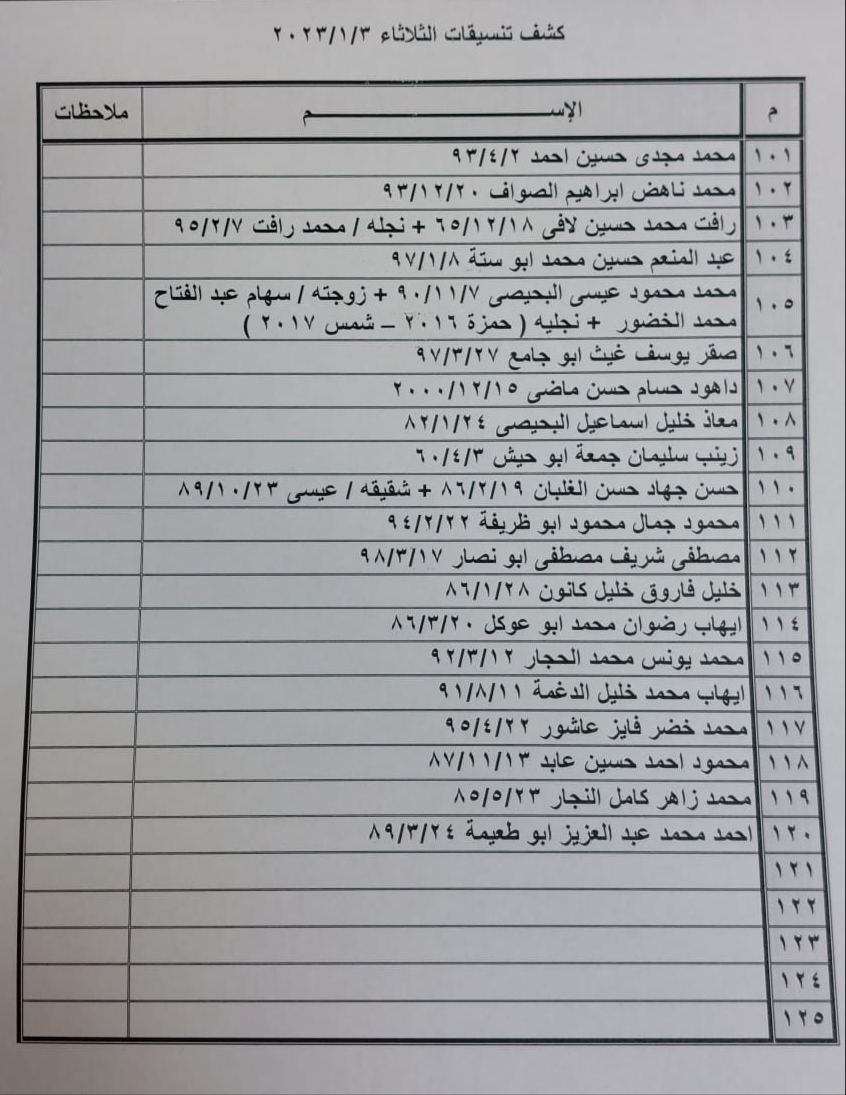 كشف تنسيقات الثلاثاء ٢٠٢٣/١/٣
م الإســـــــــم ملاحظات
١٠١ محمد مجدى حسين احمد ٩٣/٤/٢
١٠٢ محمد ناهض ابراهيم الصواف ٩٣/١٢/٢٠
١٠٣ رافت محمد حسين لافى ٦٥/١٢/١٨ + نجله / محمد رافت ٩٥/٢/٧
١٠٤ عبد المنعم حسين محمد ابو ستة ٩٧/١/٨
١٠٥ محمد محمود عيسى البحيصى ٩٠/١١/٧ + زوجته / سهام عبد الفتاح
محمد الخضور + نجليه ( حمزة ٢٠١٦ – شمس ٢٠١٧ )
١٠٦ صقر يوسف غيث ابو جامع ٩٧/٣/٢٧
١٠٧ داهود حسام حسن ماضى ٢٠٠٠/١٢/١٥
١٠٨ معاذ خليل اسماعيل البحيصى ٨٢/١/٢٤
١٠٩ زينب سليمان جمعة ابو حيش ٦٠/٤/٣
١١٠ حسن جهاد حسن الغلبان ٨٦/٢/١٩ + شقيقه / عيسى ٨٩/١٠/٢٣
١١١ محمود جمال محمود ابو ظريفة ٩٤/٢/٢٢
١١٢ مصطفى شريف مصطفى ابو نصار ٩٨/٣/١٧
١١٣ خليل فاروق خليل كانون ٨٦/١/٢٨
١١٤ ايهاب رضوان محمد ابو عوكل ٨٦/٣/٢٠
١١٥ محمد يونس محمد الحجار ٩٢/٣/١٢
١١٦ ايهاب محمد خليل الدغمة ٩١/٨/١١
١١٧ محمد خضر فايز عاشور ٩٥/٤/٢٢
١١٨ محمود احمد حسين عابد ٨٧/١١/١٣
١١٩ محمد زاهر كامل النجار ٨٥/٥/٢٣
١٢٠ احمد محمد عبد العزيز ابو طعيمة ٨٩/٣/٢٤
١٢١
١٢٢
١٢٣
١٢٤
١٢٥